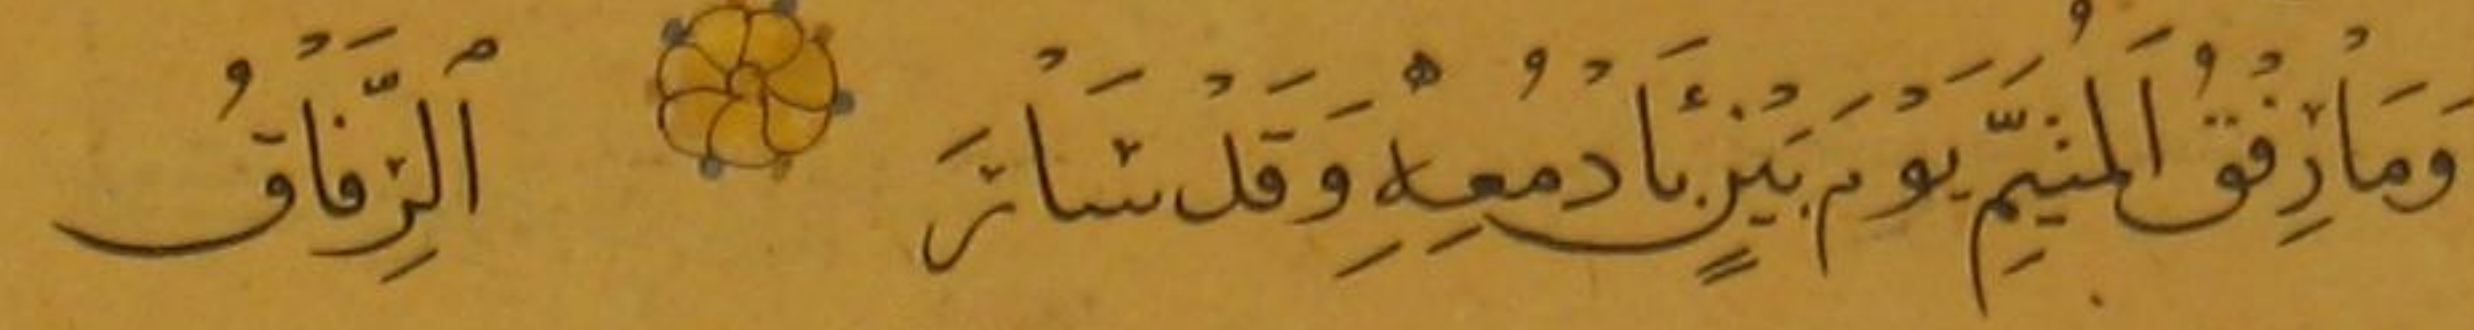 وَمَا رِفْقُ الْمُتَيَّمِ يَوْمَ بَيْنٍ بِأَدْمُعِهِ وَقَدْ سَارَ الرِّفَاقُ